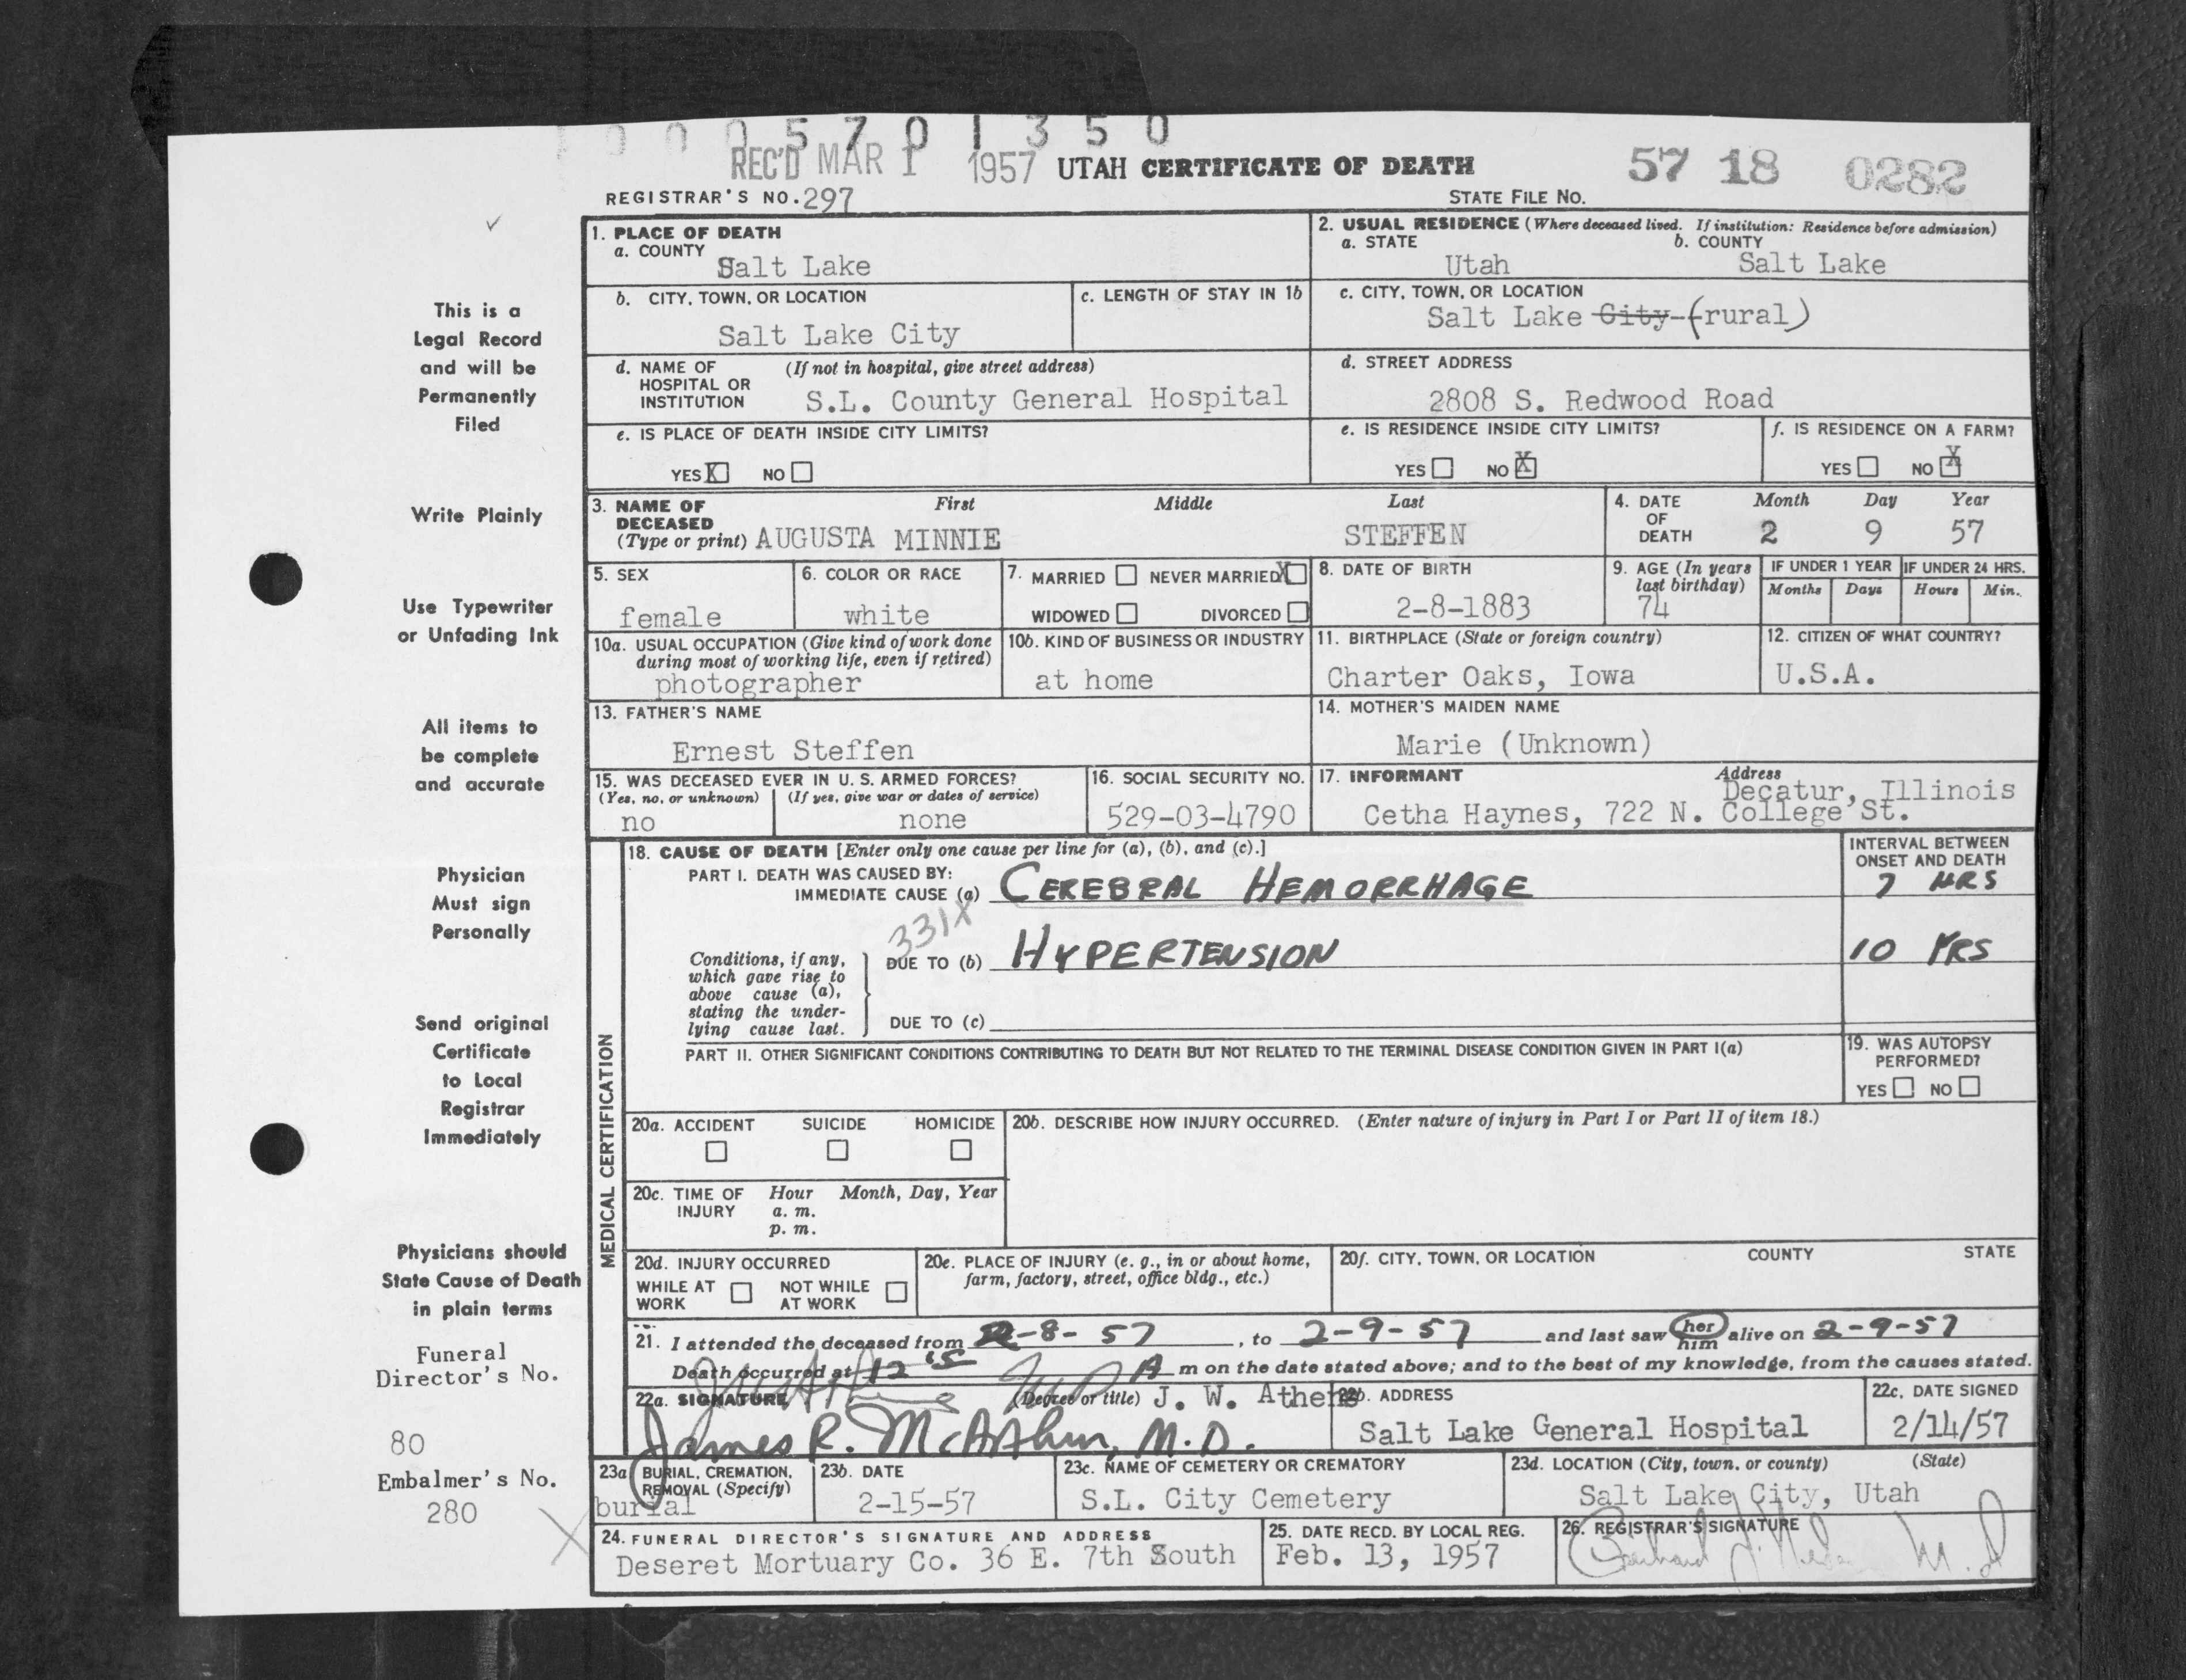 10005701350
REC'D MAR 1 1957 UTAH CERTIFICATE OF DEATH 57 18 0282
REGISTRAR'S NO. 297 STATE FILE NO.
1. PLACE OF DEATH
a. COUNTY
Salt Lake
2. USUAL RESIDENCE (Where deceased lived. If institution: Residence before admission)
a. STATE b. COUNTY
Utah Salt Lake
b. CITY, TOWN, OR LOCATION
Salt Lake City
c. LENGTH OF STAY IN 1b
c. CITY, TOWN, OR LOCATION
Salt Lake City (rural)
d. NAME OF HOSPITAL OR INSTITUTION (If not in hospital, give street address)
S.L. County General Hospital
d. STREET ADDRESS
2808 S. Redwood Road
e. IS PLACE OF DEATH INSIDE CITY LIMITS?
YES X NO
e. IS RESIDENCE INSIDE CITY LIMITS?
YES NO X
f. IS RESIDENCE ON A FARM?
YES NO X
3. NAME OF DECEASED (Type or print) First Middle Last
AUGUSTA MINNIE STEFFEN
4. DATE OF DEATH Month Day Year
2 9 57
5. SEX
female
6. COLOR OR RACE
white
7. MARRIED NEVER MARRIED X
WIDOWED DIVORCED
8. DATE OF BIRTH
2-8-1883
9. AGE (In years last birthday)
74
IF UNDER 1 YEAR IF UNDER 24 HRS.
Months Days Hours Min.
10a. USUAL OCCUPATION (Give kind of work done during most of working life, even if retired)
photographer
10b. KIND OF BUSINESS OR INDUSTRY
at home
11. BIRTHPLACE (State or foreign country)
Charter Oaks, Iowa
12. CITIZEN OF WHAT COUNTRY?
U.S.A.
13. FATHER'S NAME
Ernest Steffen
14. MOTHER'S MAIDEN NAME
Marie (Unknown)
15. WAS DECEASED EVER IN U. S. ARMED FORCES?
(Yes, no, or unknown) (If yes, give war or dates of service)
no none
16. SOCIAL SECURITY NO.
529-03-4790
17. INFORMANT Address
Decatur, Illinois
Cetha Haynes, 722 N. College St.
MEDICAL CERTIFICATION
18. CAUSE OF DEATH [Enter only one cause per line for (a), (b), and (c).]
INTERVAL BETWEEN ONSET AND DEATH
PART I. DEATH WAS CAUSED BY:
IMMEDIATE CAUSE (a) CEREBRAL HEMORRHAGE 7 HRS
331X
Conditions, if any, which gave rise to above cause (a), stating the underlying cause last.
DUE TO (b) HYPERTENSION 10 YRS
DUE TO (c)
PART II. OTHER SIGNIFICANT CONDITIONS CONTRIBUTING TO DEATH BUT NOT RELATED TO THE TERMINAL DISEASE CONDITION GIVEN IN PART I(a)
19. WAS AUTOPSY PERFORMED?
YES NO
20a. ACCIDENT SUICIDE HOMICIDE
20b. DESCRIBE HOW INJURY OCCURRED. (Enter nature of injury in Part I or Part II of item 18.)
20c. TIME OF INJURY Hour Month, Day, Year
a. m.
p. m.
20d. INJURY OCCURRED
WHILE AT WORK NOT WHILE AT WORK
20e. PLACE OF INJURY (e. g., in or about home, farm, factory, street, office bldg., etc.)
20f. CITY, TOWN, OR LOCATION COUNTY STATE
21. I attended the deceased from 2-8-57, to 2-9-57 and last saw her him alive on 2-9-57
Death occurred at 12 15 A m on the date stated above; and to the best of my knowledge, from the causes stated.
22a. SIGNATURE (Degree or title) J. W. Athens
James R. McArthur, M.D.
22b. ADDRESS
Salt Lake General Hospital
22c. DATE SIGNED
2/14/57
23a BURIAL, CREMATION, REMOVAL (Specify)
burial
23b. DATE
2-15-57
23c. NAME OF CEMETERY OR CREMATORY
S.L. City Cemetery
23d. LOCATION (City, town, or county) (State)
Salt Lake City, Utah
24. FUNERAL DIRECTOR'S SIGNATURE AND ADDRESS
Deseret Mortuary Co. 36 E. 7th South
25. DATE RECD. BY LOCAL REG.
Feb. 13, 1957
26. REGISTRAR'S SIGNATURE
M.D
This is a
Legal Record
and will be
Permanently
Filed
Write Plainly
Use Typewriter
or Unfading Ink
All items to
be complete
and accurate
Physician
Must sign
Personally
Send original
Certificate
to Local
Registrar
Immediately
Physicians should
State Cause of Death
in plain terms
Funeral
Director's No.
80
Embalmer's No.
280